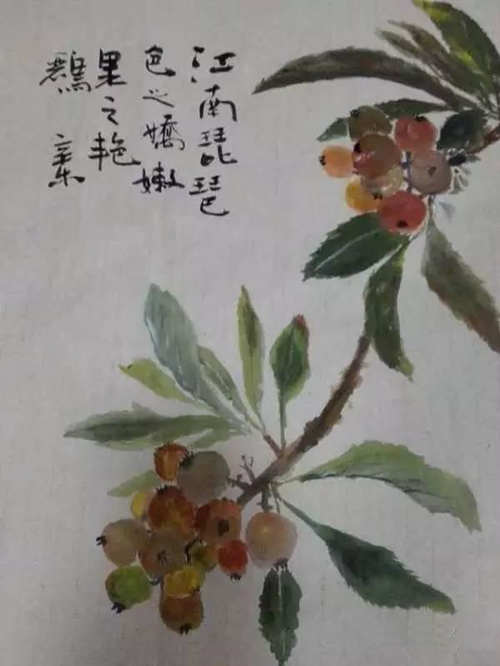 江南琵琶
色之嬌嫩
果之艳